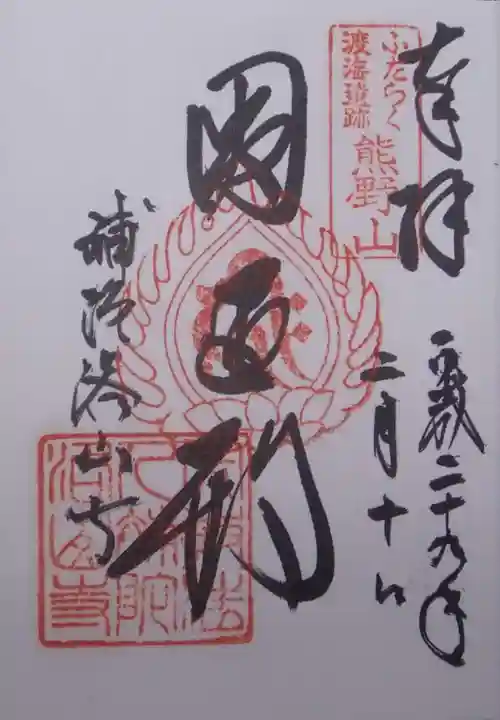 奉拝
平成二十九年
二月十日
ふだらく
渡海遺跡
熊野山
圓正刹
補陀洛山寺